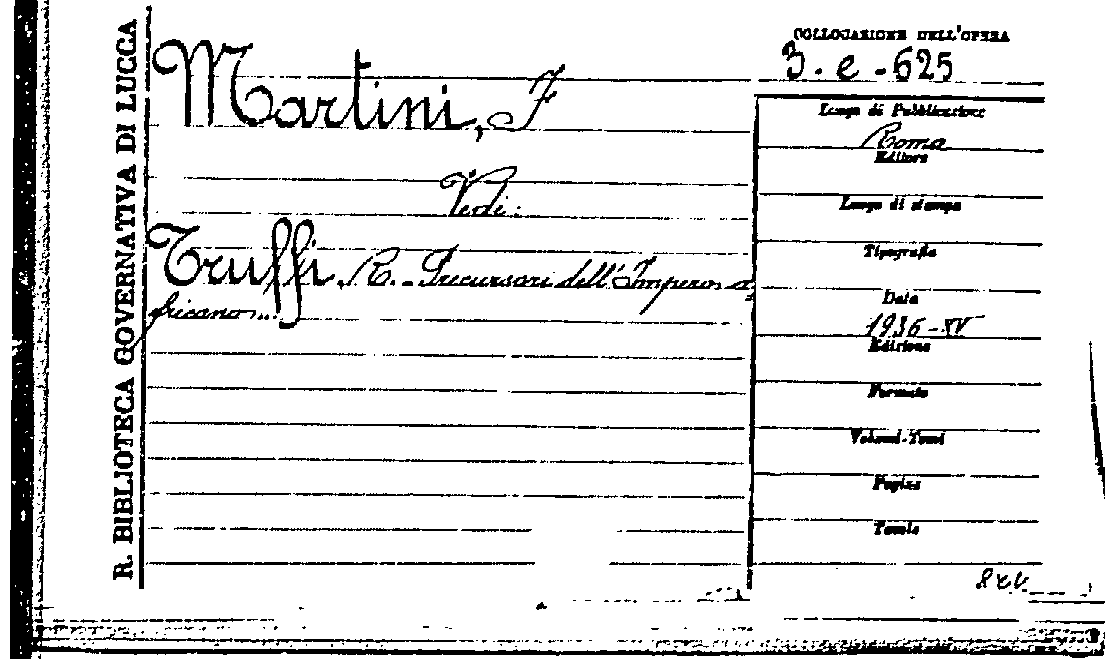 R. BIBLIOTECA GOVERNATIVA DI LUCCA
Martini, F
Vedi:
Truffi, R. - Precursori dell'Impero a
fricano..
COLLOCAZIONE DELL'OPERA
3. e - 625
Luogo di Pubblicazione
Roma
Editore
Luogo di stampa
Tipografia
Data
1936-XV
Edizione
Formato
Volumi-Tomi
Pagine
Tavole